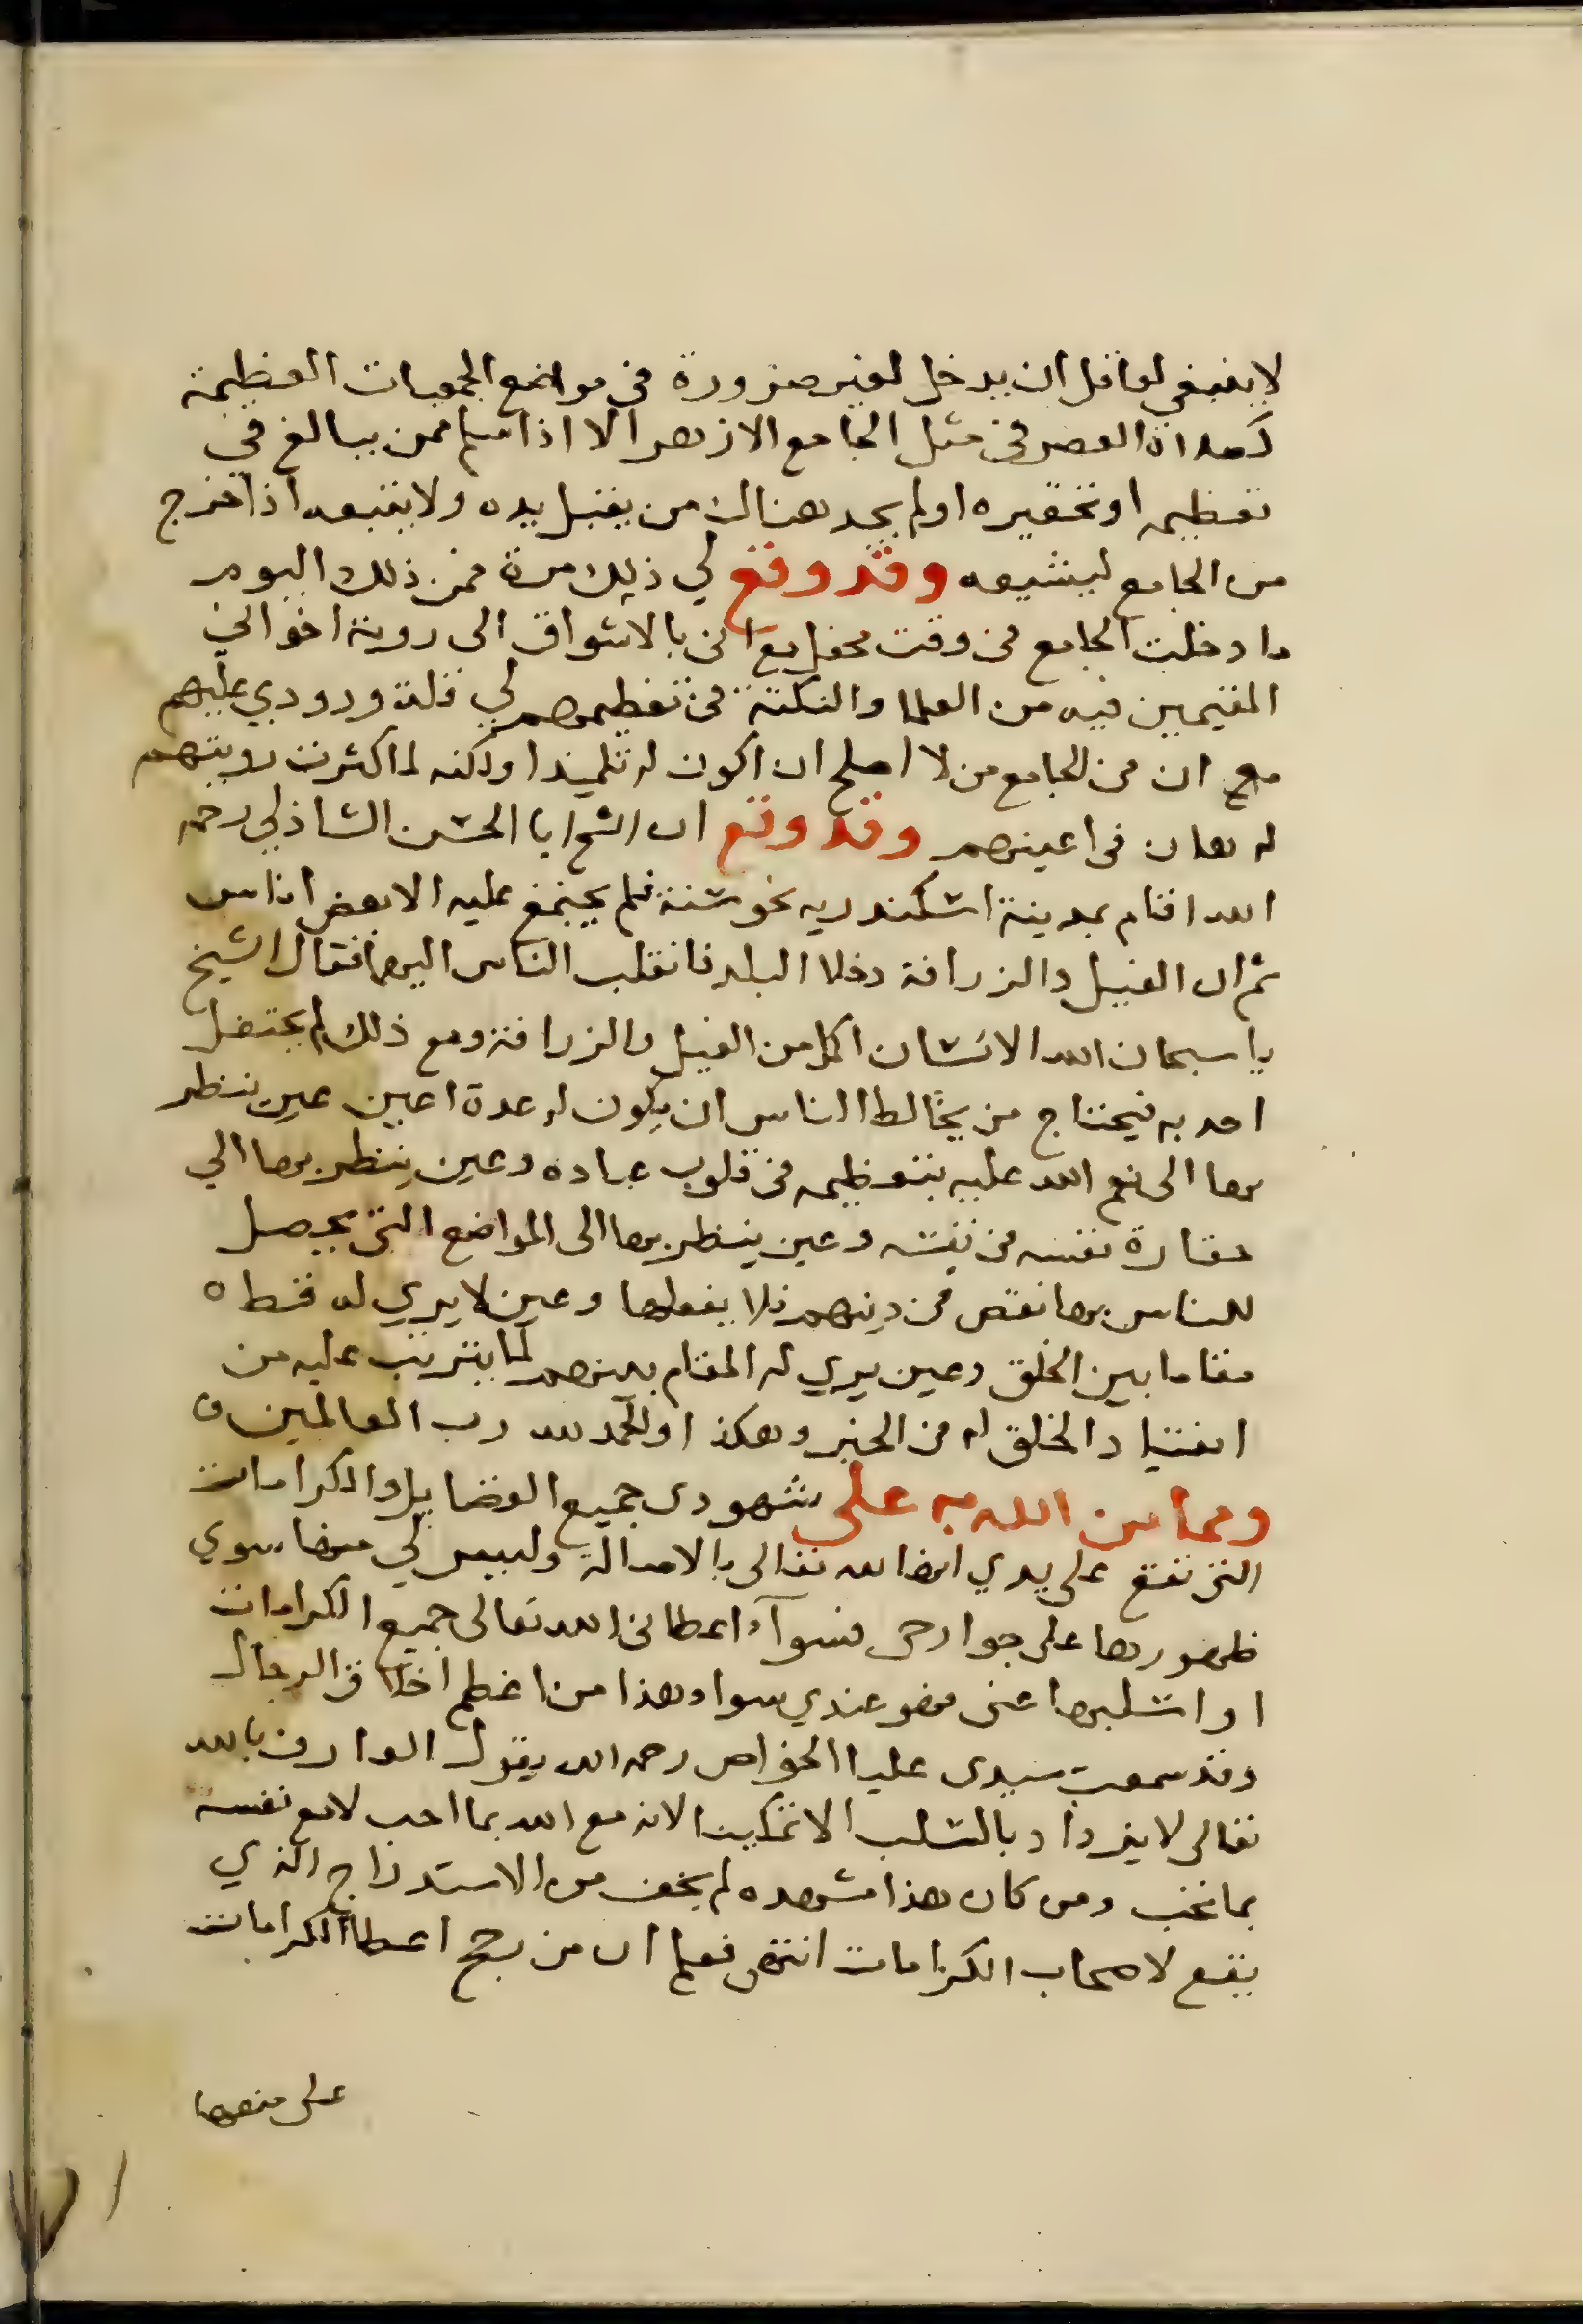 لا ينبغي لعاقل ان يدخل لغير ضرورة في مواضع الجمعيات العظيمة
كصلاة العصر في مثل الجامع الازهر الا اذا سلم ممن يبالغ في
تعظيمه او تحقيره او لم يجد هناك من يقبل يده ولا يتبعه اذا خرج
من الجامع ليشيعه وقد وقع لي ذلك مرة فمن ذلك اليوم
ما دخلت الجامع في وقت محفل مع انني بالاشواق الى روية اخواني
المقيمين فيه من العلما والنكتة في تعظيمهم لي قلة ورودي عليهم
مع ان في الجامع من لا اصلح ان اكون له تلميذا ولكنه لما اكثرت رويتهم
له هان في اعينهم وقد وقع ان الشيخ ابا الحسن الشاذلي رحمه
الله اقام بمدينة اسكندريه نحو سنة فلم يجتمع عليه الا بعض اناس
ثم ان الفيل والزرافة دخلا البلد فانقلب الناس اليهما فقال الشيخ
يا سبحان الله الانسان اكمل من الفيل والزرافة ومع ذلك لم يحتفل
احد به فيحتاج من يخالط الناس ان يكون له عدة اعين عين ينظر
بها الى نعم الله عليه بتعظيمه في قلوب عباده وعين ينظر بها الي
حقارة نفسه في نفسه وعين ينظر بها الى المواضع التي يحصل
للناس بها نقص في دينهم فلا يفعلها وعين لا يري له قط ه
مقاما بين الخلق وعين يري له المقام بينهم لما يترتب عليه من
انقياد الخلق له في الخير وهكذا والحمد لله رب العالمين
ومما من الله به على شهودى جميع الفضايل والكرامات
التي تقع على يدي انها لله تعالى بالاصالة وليس لي منها سوي
ظهورها على جوارحي فسوآء اعطاني الله تعالى جميع الكرامات
او سلبها عني فهو عندي سوا وهذا من اعظم اخلاق الرجال
وقد سمعت سيدى عليا الخواص رحمه الله يقول العارف بالله
تعالى لا يزداد بالسلب الا تمكينا لانه مع الله بما احب لا مع نفسه
بما تحب ومن كان هذا مشهده لم يخف من الاستدراج الذي
يقع لاصحاب الكرامات انتهى فعلم ان من رجح اعطا الكرامات
على منعها